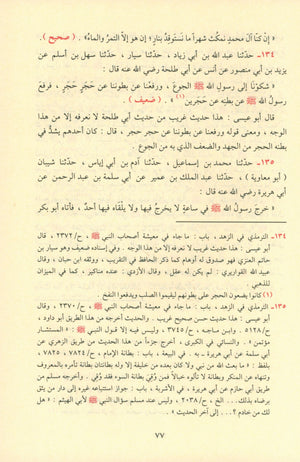 « إِنْ كنَّا آلَ محمدٍ نَمكُث شهراً ما نَستَوقِدُ بنارٍ ، إنْ هو إلاَّ التمرُ والماءُ » . ( صحيح ) .
١٣٤ـ حدّثنا عبد الله بن أبي زياد ، حدّثنا سيار ، حدّثنا سهل بن أسلم عن
يزيد بن أبي منصور عن أنس عن أبي طلحة رضي الله عنه قال :
« شكَوْنَا إلى رسولِ اللهِ ﷺ الجوعَ ، ورفَعْنا عن بطونِنا عن حَجَرٍ حَجَرٍ ، فرفعَ
رسولُ اللهِ ﷺ عن بطنِه عن حَجَرَين »(١) . ( ضعيف ) .
قال أبو عيسى : هذا حديث غريب من حديث أبي طلحة لا نعرفه إلا من هذا
الوجه ، ومعنى قوله ورفعنا عن بطوننا عن حجر حجر ، قال : كان أحدهم يشدُّ في
بطنه الحجر من الجهد والضعف الذي به من الجوع .
١٣٥ـ حدّثنا محمد بن إسماعيل ، حدّثنا آدم بن أبي إياس ، حدّثنا شيبان
( أبو معاوية ) ، حدّثنا عبد الملك بن عمير عن أبي سلمة بن عبد الرحمن عن
أبي هريرة رضي الله عنه قال :
« خرجَ رسولُ اللهِ ﷺ في ساعةٍ لا يخرجُ فيها ولا يلْقَاه فيها أحدٌ ، فأتاه أبو بكر
١٣٤ـ الترمذي في الزهد ، باب : ما جاء في معيشة أصحاب النبي ﷺ ، ح/٢٣٧٢ ، وقال
أبو عيسى : هذا حديث غريب لا نعرفه إلا من هذا الوجه . وفي إسناده ضعيف وهو سيار بن
حاتم العنزي فهو صدوق له أوهام كما ذكر الحافظ في التقريب ، ووثقه ابن حبان ، وقال
عبد الله القواريري : لم يكن له عقل ، وقال الأزدي : عنده مناكير ، كما في الميزان
للذهبي .
(١) كانوا يضعون الحجر على بطونهم ليقيموا الصلب ويدفعوا النفخ .
١٣٥ـ الترمذي في الزهد ، باب : ما جاء في معيشة أصحاب النبي ﷺ ، ح/٢٣٧٠ ، وقال
أبو عيسى : هذا حديث حسن صحيح غريب . والحديث أخرجه من هذا الطريق أبو داود ،
ح/٥١٢٨ . وابن ماجه ، ح/٣٧٤٥ ، وليس فيه إلا قول النبي ﷺ : « المستشار
مؤتمن » . والنسائي في الكبرى ، أخرج جزءاً من هذا الحديث من طريق الزهري عن
أبي سلمة عن أبي هريرة ـ به . في البيعة ، باب : بطانة الإمام ، ح/٧٨٢٤ ، ٧٨٢٥
بلفظ : « ما بعث الله من نبي ولا كان بعده من خليفة إلا وله بطانتان بطانة تأمره بالمعروف
وتنهاه عن المنكر وبطانة لا تألوه خبالاً فمن وُقِيَ بطانة السوء فقد وُقي . وأخرجه مسلم من
طريق أبي حازم عن أبي هريرة ، في الأشربة ، باب : جواز استتباعه غيره إلى دار من يثق
برضاه بذلك... الخ ، ح/٢٠٣٨ ، وليس عند مسلم سؤال النبي ﷺ لأبي الهيثم : « هل
لك من خادم ؟... إلى آخر الحديث » .
٧٧